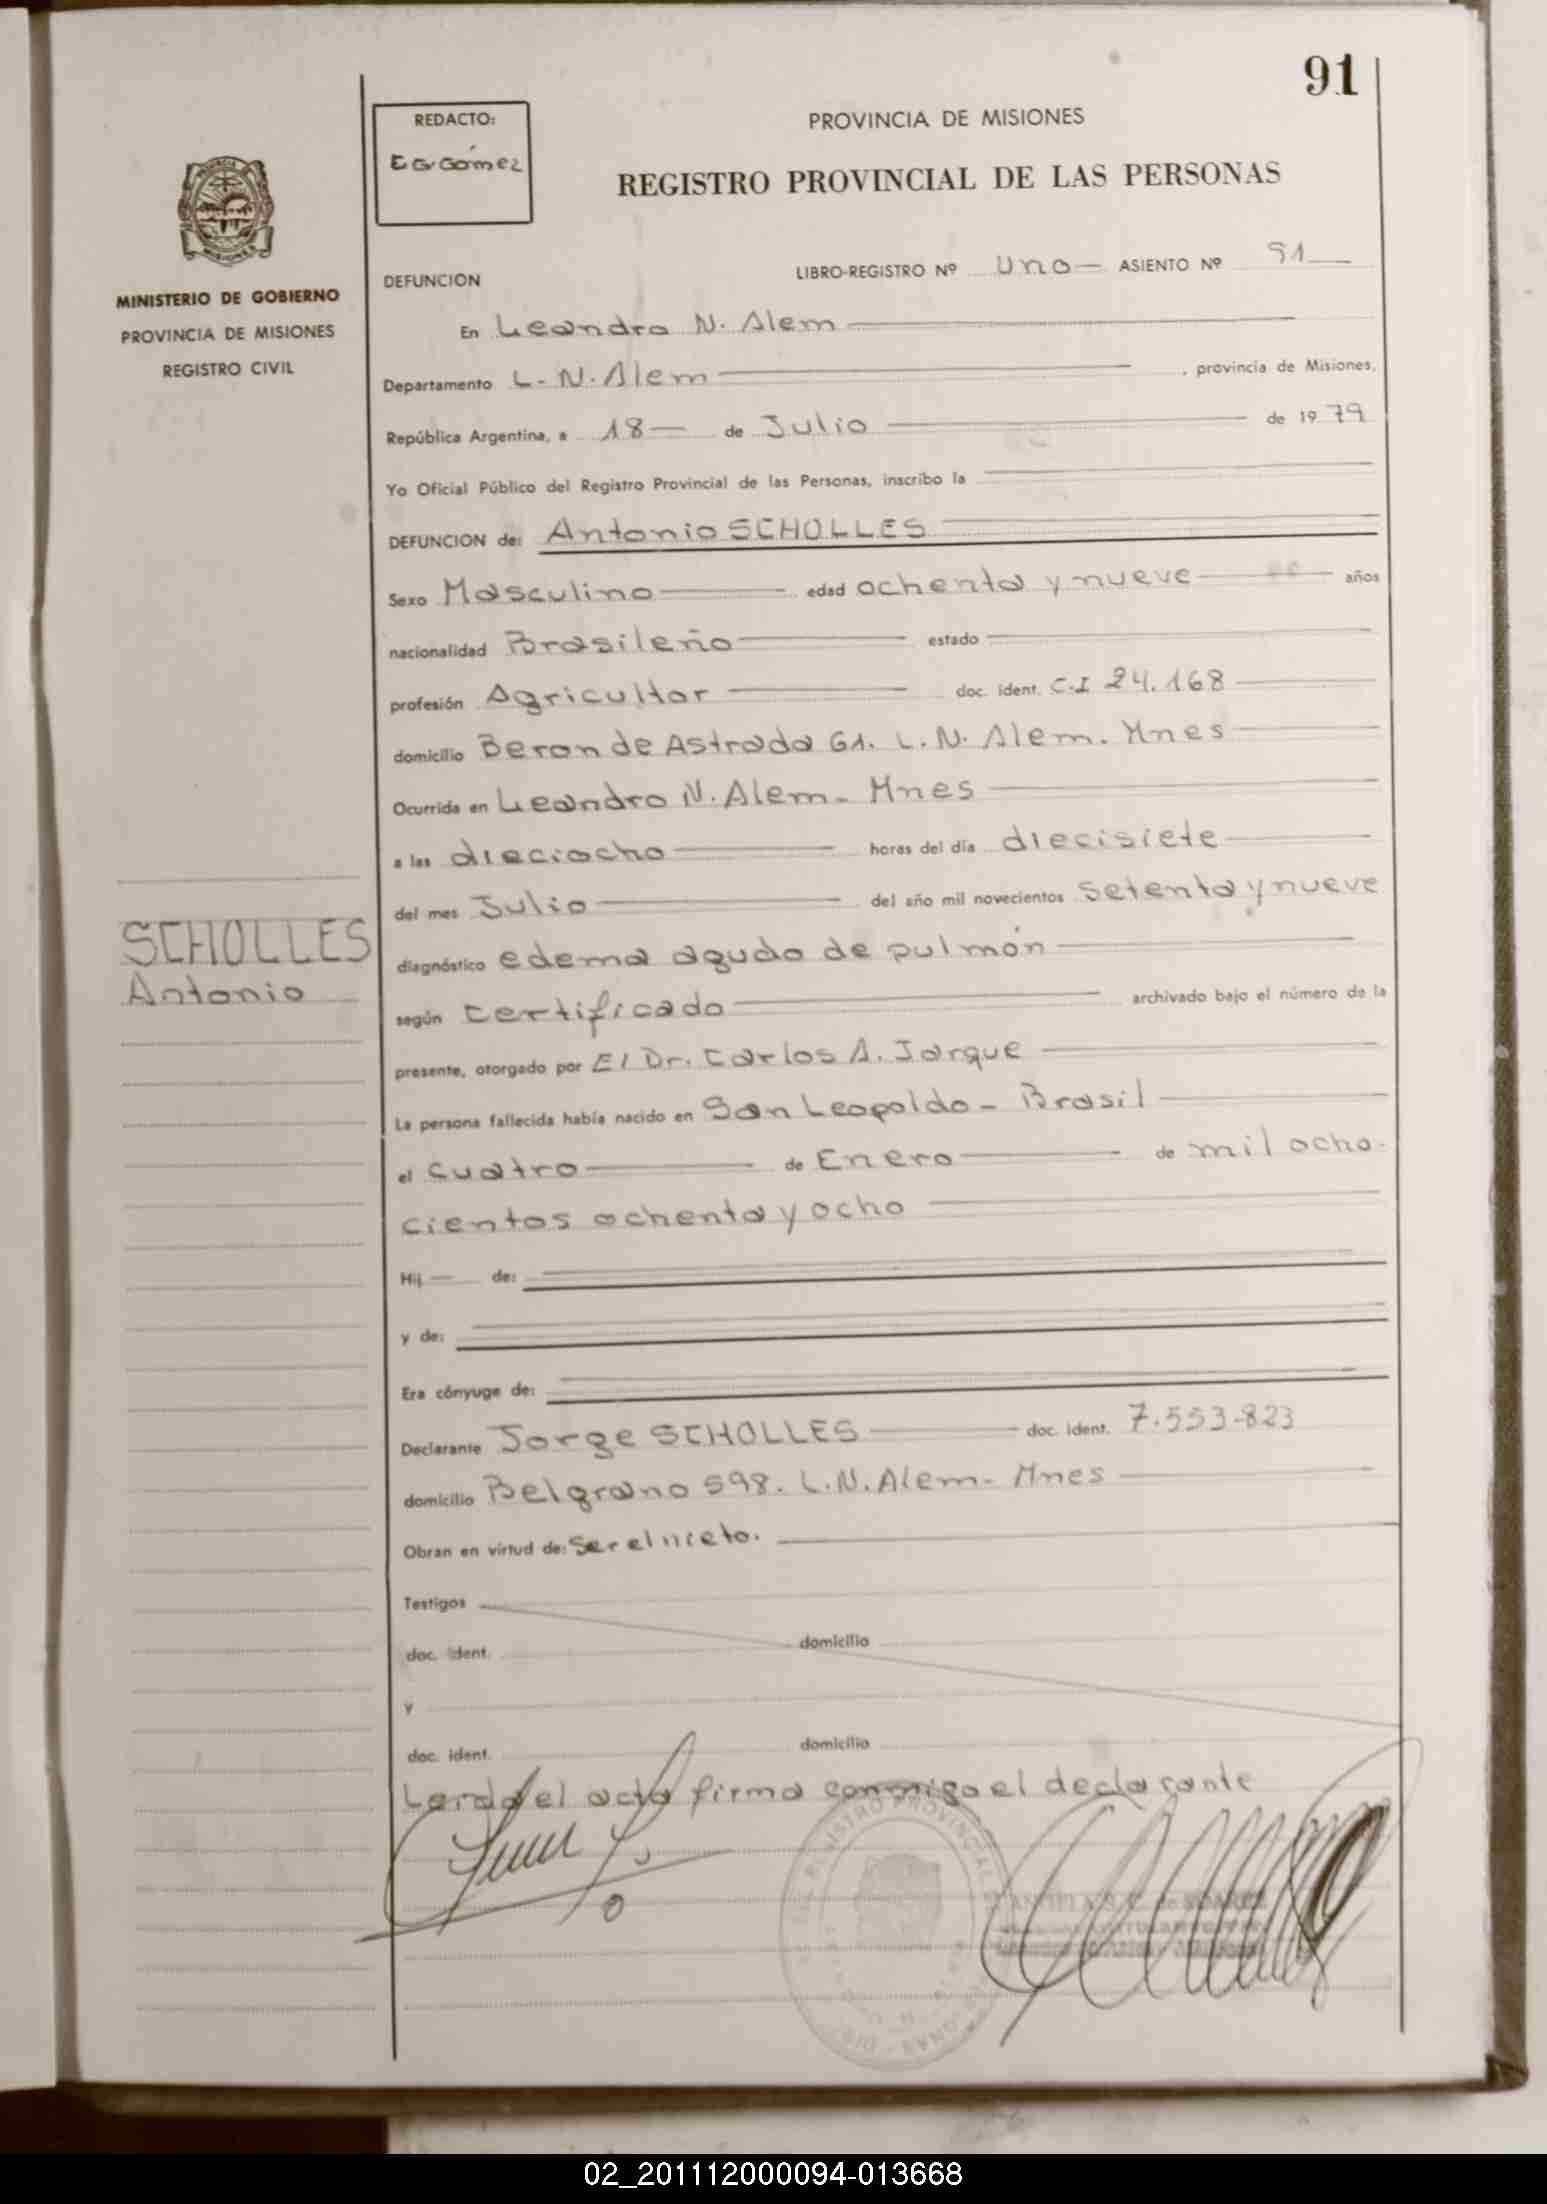 91
REDACTO:
PROVINCIA DE MISIONES
REGISTRO PROVINCIAL DE LAS PERSONAS
MINISTERIO DE GOBIERNO
PROVINCIA DE MISIONES
REGISTRO CIVIL
DEFUNCION LIBRO-REGISTRO Nº Uno ASIENTO Nº 91
En Leandro N. Alem
Departamento L. N. Alem , provincia de Misiones,
República Argentina, a 18 de Julio de 1979
Yo Oficial Público del Registro Provincial de las Personas, inscribo la
DEFUNCION de: Antonio SCHOLLES
Sexo Masculino edad ochenta y nueve años
nacionalidad Brasileño estado
profesión Agricultor doc. ident. C.I 24.168
domicilio Beron de Astrada 61. L.N. Alem. Mnes
Ocurrida en Leandro N. Alem - Mnes
a las dieciocho horas del día diecisiete
del mes Julio del año mil novecientos setenta y nueve
SCHOLLES
Antonio
diagnóstico edema agudo de pulmón
según certificado archivado bajo el número de la
presente, otorgado por El Dr. Carlos A. Jarque
La persona fallecida había nacido en San Leopoldo - Brasil
el cuatro de Enero de mil ocho-
cientos ochenta y ocho
Hij de:
y de:
Era cónyuge de:
Declarante Jorge SCHOLLES doc. ident. 7.553.823
domicilio Belgrano 598. L.N. Alem - Mnes
Obran en virtud de: ser el nieto.
Testigos
doc. ident. domicilio
y
doc. ident. domicilio
Leida el acta firma conmigo el declarante
02_201112000094-013668